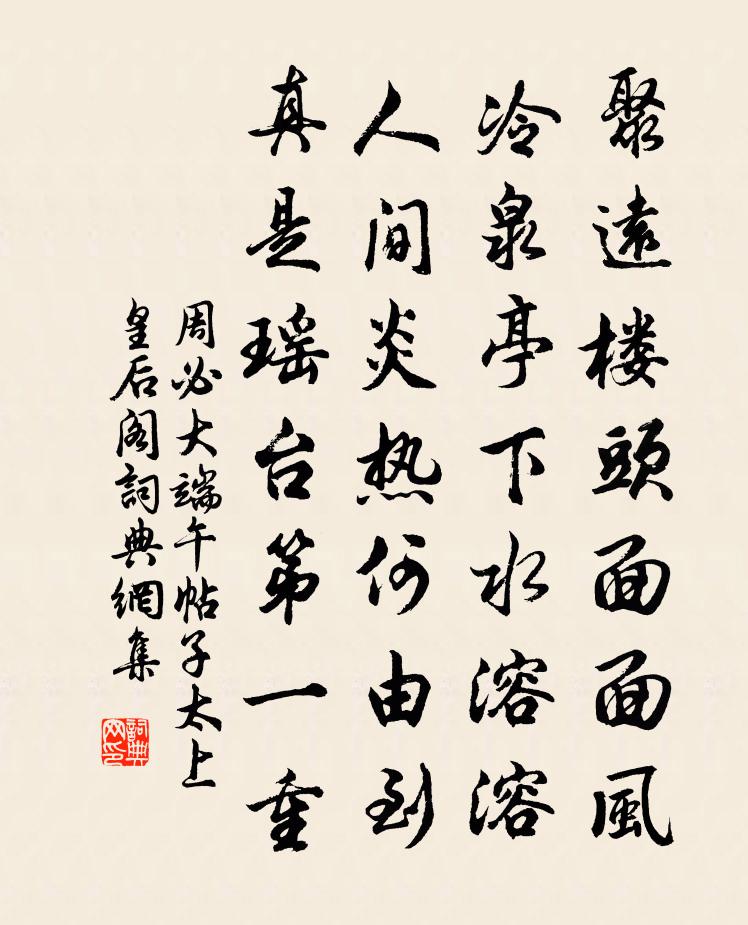 聚遠楼頭面面風
冷泉亭下水溶溶
人间炎热何由到
真是瑶台第一重
周必大端午帖子太上
皇后阁詞典網集
詞典
网印